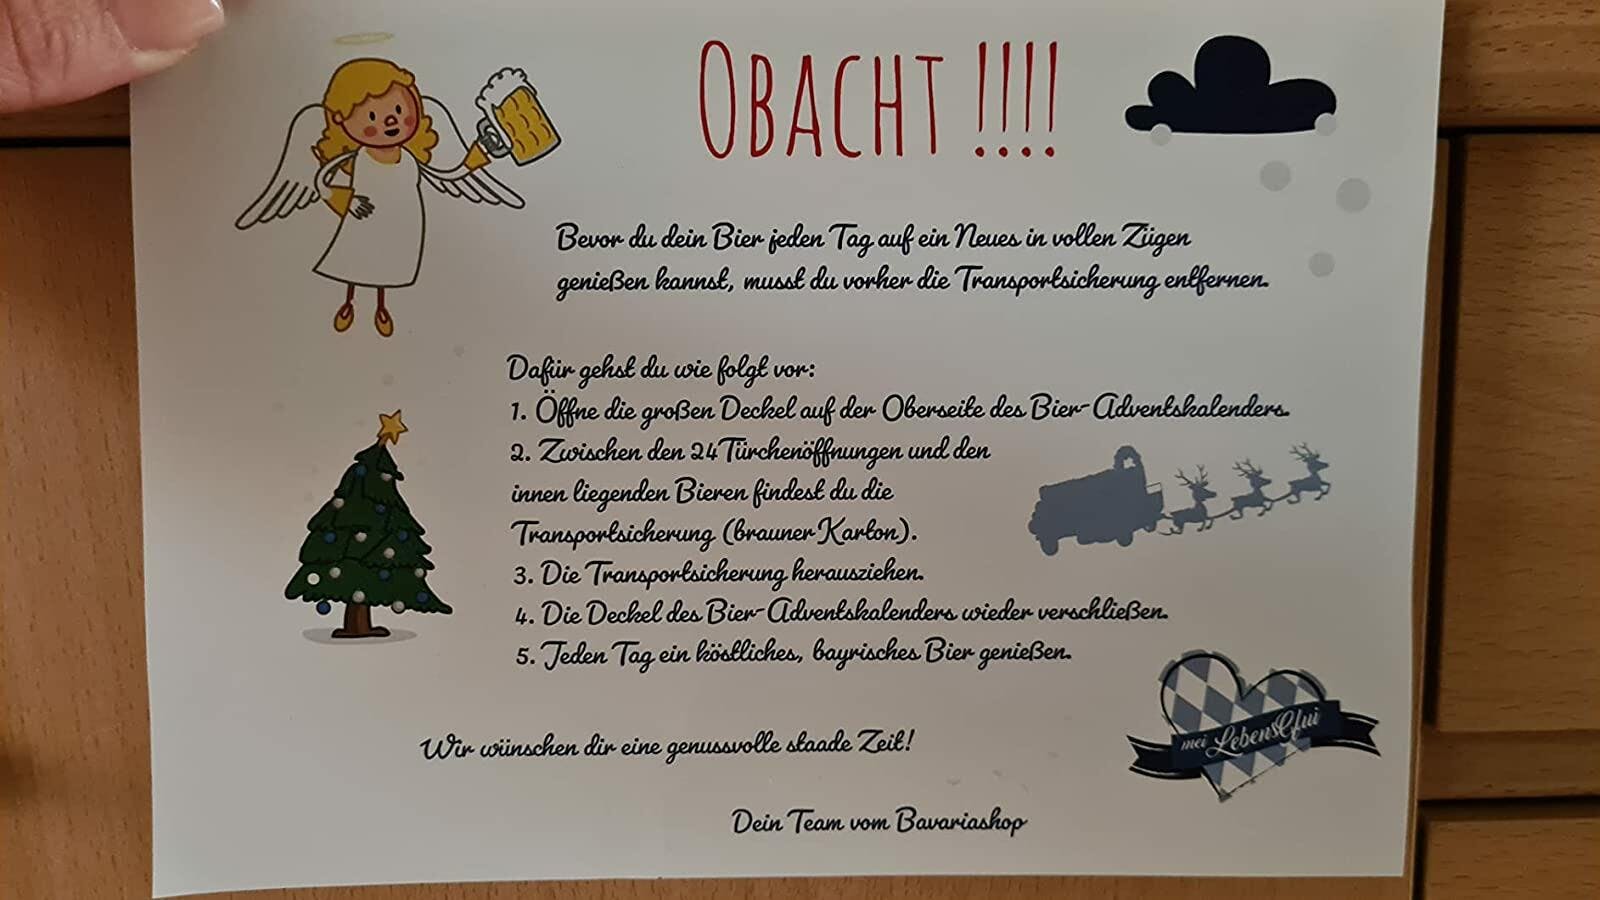 OBACHT !!!!
Bevor du dein Bier jeden Tag auf ein Neues in vollen Zügen
genießen kannst, musst du vorher die Transportsicherung entfernen.
Dafür gehst du wie folgt vor:
1. Öffne die großen Deckel auf der Oberseite des Bier-Adventskalenders.
2. Zwischen den 24 Türchenöffnungen und den
innen liegenden Bieren findest du die
Transportsicherung (brauner Karton).
3. Die Transportsicherung herausziehen.
4. Die Deckel des Bier-Adventskalenders wieder verschließen.
5. Jeden Tag ein köstliches, bayrisches Bier genießen.
mei LebensGfui
Wir wünschen dir eine genussvolle staade Zeit!
Dein Team vom Bavariashop